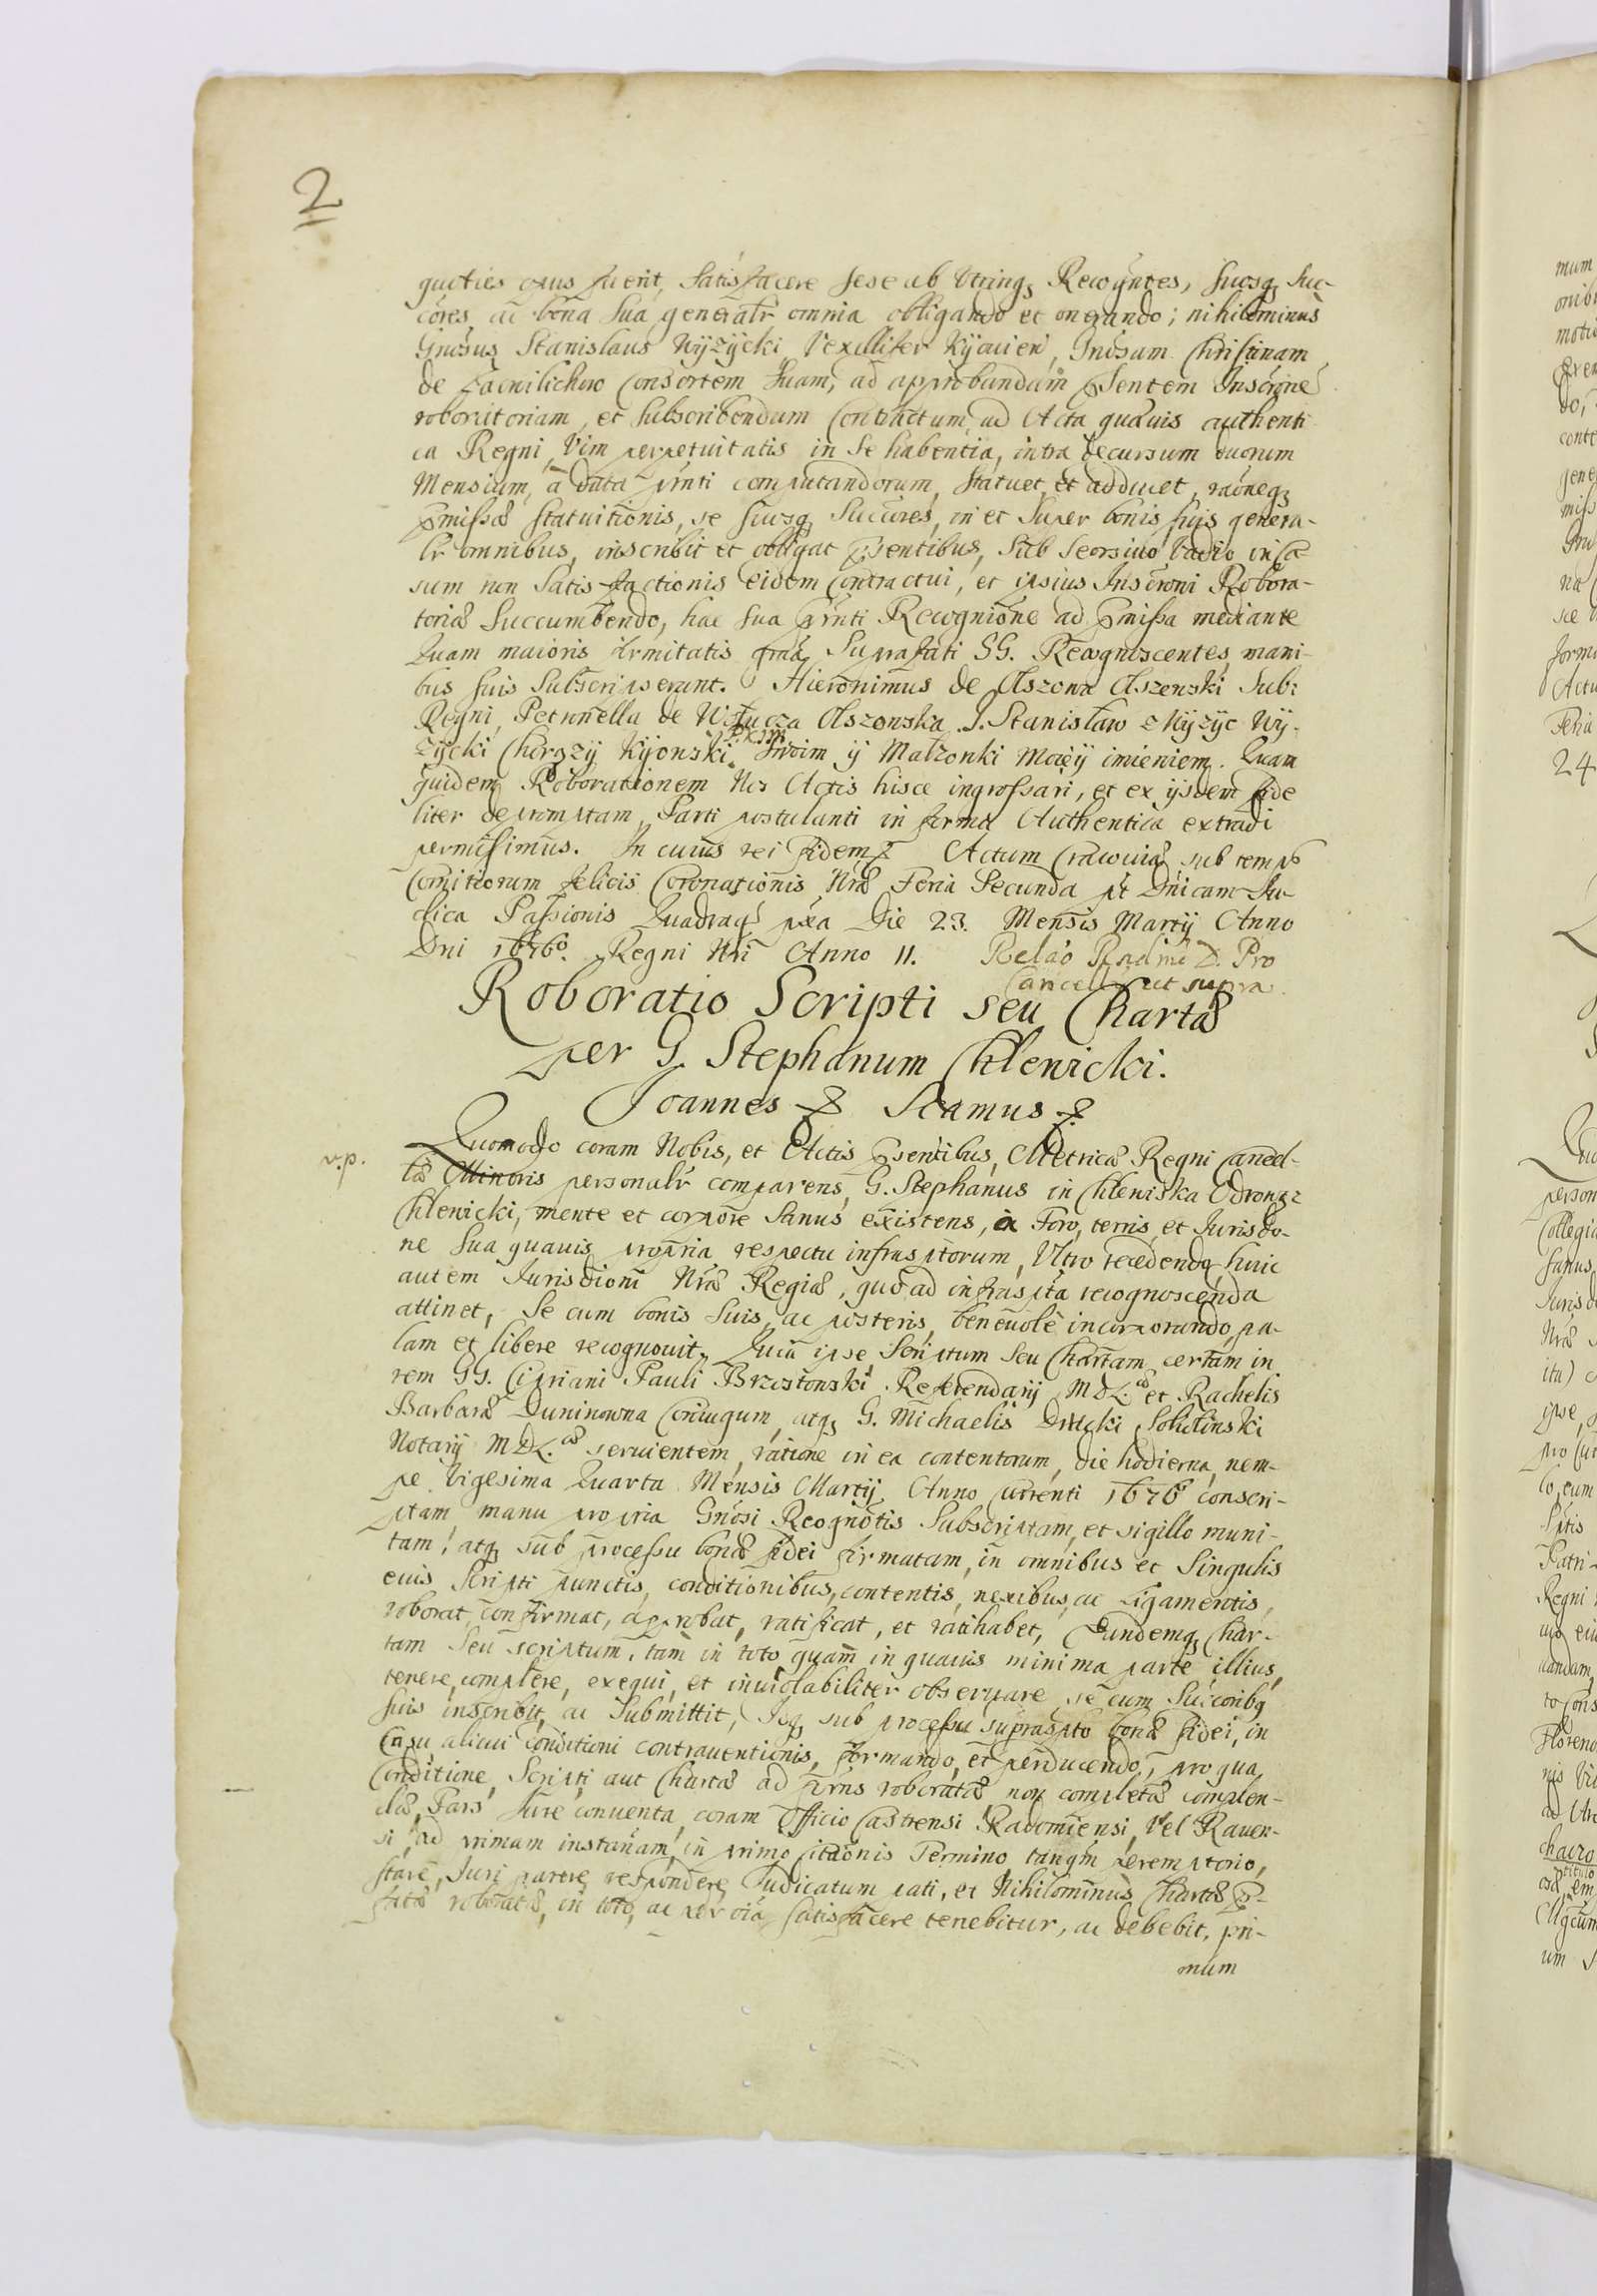 2
quoties opus fuerit, satisfacere sese ab utrinq₃ Recogntes, suosq₃ Suc-
córes, ac bona sua generalr omnia obligando et onerando; nihilominus
Gnosus Stanislaus Wyżycki Vexillifer Kijouien, Gnosam Christinam
de Consortem suam, ad approbandam p̄sentem Inscr̄ne
roboratoriam, et subscribendum Contractum, ad Acta quævis authenti
ca Regni, Vim perpetuitatis in se habentia, intra decursum duorum
Mensium, à data p̄rnti computandorum, statuet, et adducet, raōneq₃
p̄missæ statuitionis, se suosq₃ Succōres, in et super bonis suis genera-
lr omnibus, inscribit et obligat p̄sentibus, sub seorsiuo Vadio, in ca
sum non satis-factionis eidem Contractui, et ipsius Inscr̄oni Robora-
toriæ Succumbendo, hac sua p̄rnti Recognitione ad p̄missa mediante
Quam maioris firmitatis grā, Suprafati GG. Recognoscentes, mani-
bus suis subscripserunt. Hieronimus de Olszowa Olszowski Sub:
Regni, Petronella de Olszowska. J. Stanisław z Wyżyc Wy-
życki Chorąży Kijowski swoim y Małżonki moiey imieniem. Quam
quidem Roborationem Nos Actis hisce ingrossari, et ex ijsdem fide
liter depromptam, Parti postulanti in forma Authentica extradi
permisimus. In cuius rei fidem ꝛc Actum Cracouiæ sub tempo
Comitiorum felicis Coronationis Nrae Feria Secunda pt Dnicam Ju-
dica Passionis Quadrag. pxa Die 23. Mensis Martij Anno
Dni 1676°. Regni Nri Anno II. Relao Rndmi D. Pro
Cancell. ut supra
Roboratio Scripti seu Chartæ
per G. Stephanum Chlewicki.
Joannes ꝛc Scamus ꝛc
v.p. Quomodo coram Nobis, et Actis p̄sentibus, Metricæ Regni Cancel-
læ Minoris personalr comparens, G. Stephanus in Chlewiska Odrowąż
Chlewicki, mente et corpore sanus existens, à Foro, terris, et Jurisdo-
ne sua quauis propria, respectu infrasptorum, Vltro recedendo, huic
autem Jurisdioni Nræ Regiæ, quo ad infraspta recognoscenda
attinet, se cum bonis suis, ac posteris, beneuolè incorporando, pa-
lam et libere recognouit. Quia ipse Scriptum seu Chartam, certam in
rem GG. Cipriani Pauli Brzostowski Referendarij MDL.æ et Rachelis
Barbaræ Duninowna Coniugum, atq₃ G. Michaelis Drucki Sokolinski
Notarij MDL.æ seruientem, ratione in ea contentorum, die hodierna, nem-
pe Vigesima Quarta Mensis Martij Anno Currenti 1676° conscri-
ptam manu propria Gnosi Recognotis subscriptam, et sigillo muni-
tam, atq₃ sub processu bonæ fidei firmatam, in omnibus et singulis
euis Scripti punctis, conditionibus, contentis, nexibus, ac ligamentis,
roborat, confirmat, approbat, ratificat, et ratihabet, Eundemq₃ Char-
tam seu scriptum, tam in toto quam in quauis minima parte illius,
tenere, complere, exequi, et inuiolabiliter obseruare, se cum Succoribq
suis inscribit, ac submittit, Idq₃ sub processu suprascpto bonæ fidei, in
Casu alicui Conditioni contrauentionis, formando, et perducendo, pro qua
Conditione, Scripti aut Chartæ ad p̄rns roboratæ, non completæ complen-
dæ, Pars Jure conuenta, coram Officio Castrensi Radomiensi, Vel Rauen-
si, ad primam instanam, in primo citaonis Termino, tanqm peremptorio,
stare, Juri parere, respondere, Judicatum pati, et Nihilominus Chartæ p̄-
fatæ roboratæ, in toto, ac per oia, satisfacere tenebitur, ac debebit, pri-
mum